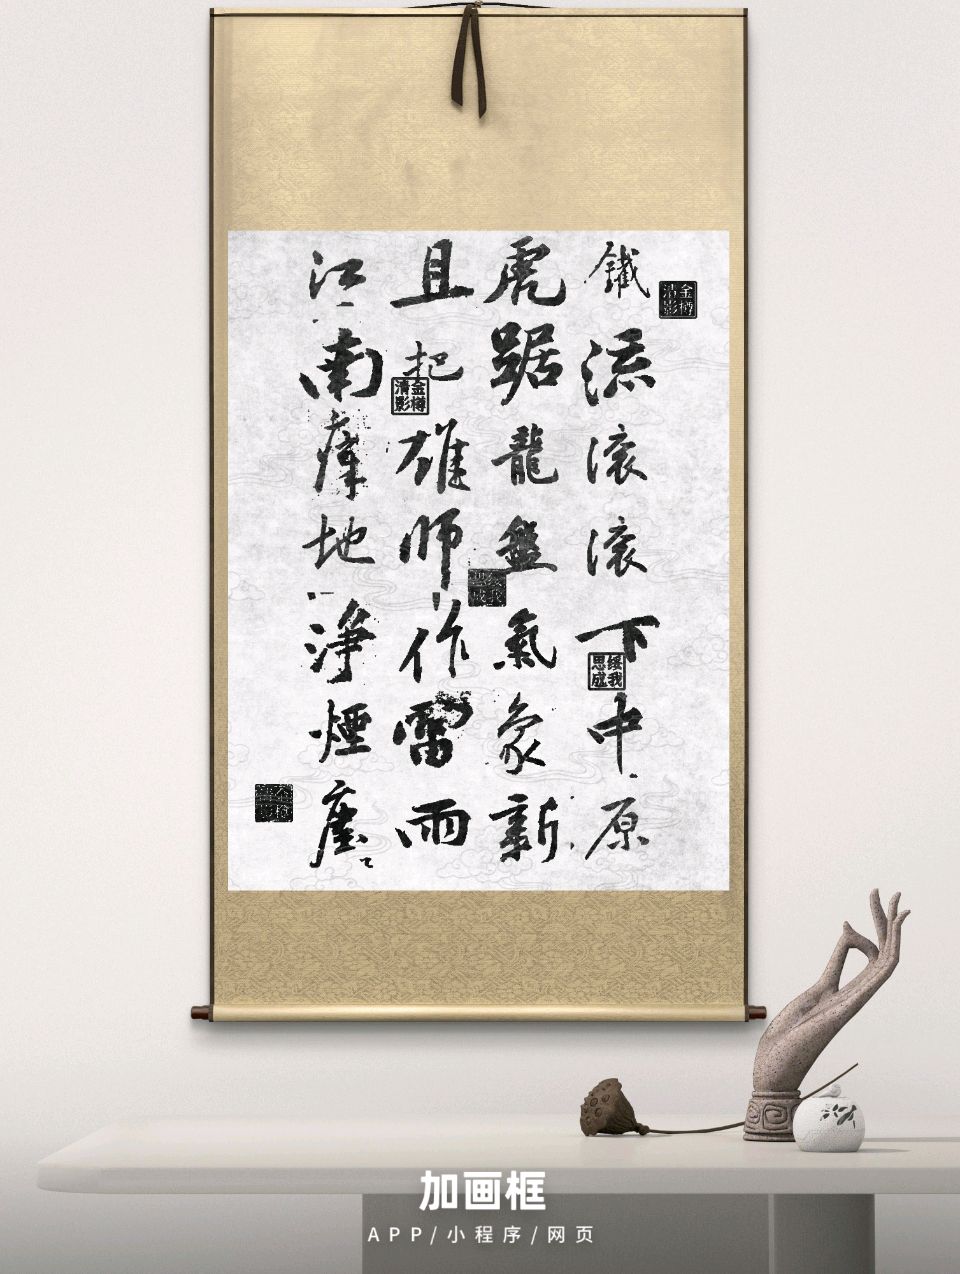 鐵流滾滾下中原
虎踞龍盤氣象新
且把雄師作雷雨
江南瘴地淨煙塵
金樽
清影
金樽
清影
綏我
思成
綏我
思成
加画框
APP/小程序/网页